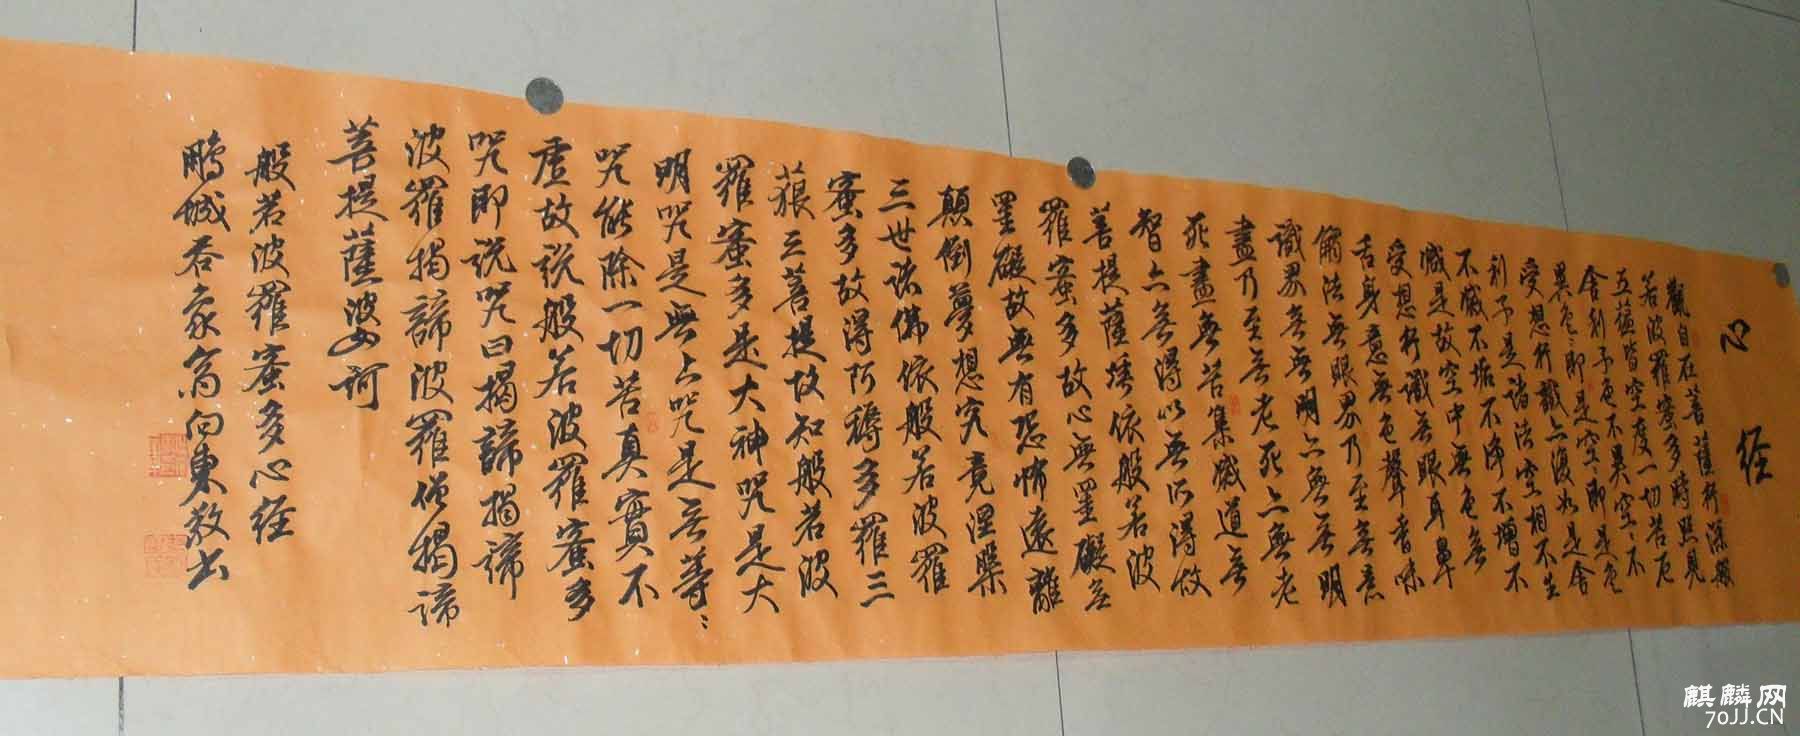 心经
觀自在菩薩行深般
若波羅蜜多時照見
五蕴皆空度一切苦厄
舍利子色不異空〻不
異色〻即是空〻即是色
受想行識亦復如是舍
利子是諸法空相不生
不滅不垢不净不增不
滅是故空中無色無
受想行識無眼耳鼻
舌身意無色聲香味
觸法無眼界乃至無意
識界無無明亦無無明
盡乃至無老死亦無老
死盡無苦集滅道無
智亦無得以無所得故
菩提薩埵依般若波
羅蜜多故心無罣礙無
罣礙故無有恐怖遠離
顛倒夢想究竟涅槃
三世諸佛依般若波羅
蜜多故得阿耨多羅三
藐三菩提故知般若波
羅蜜多是大神咒是大
明咒是無上咒是無等〻
咒能除一切苦真實不
虛故说般若波羅蜜多
咒即说咒曰揭諦揭諦
波羅揭諦波羅僧揭諦
菩提薩波女訶
般若波羅蜜多心经
鵬城 向東敬书
麒麟网
70JJ.CN